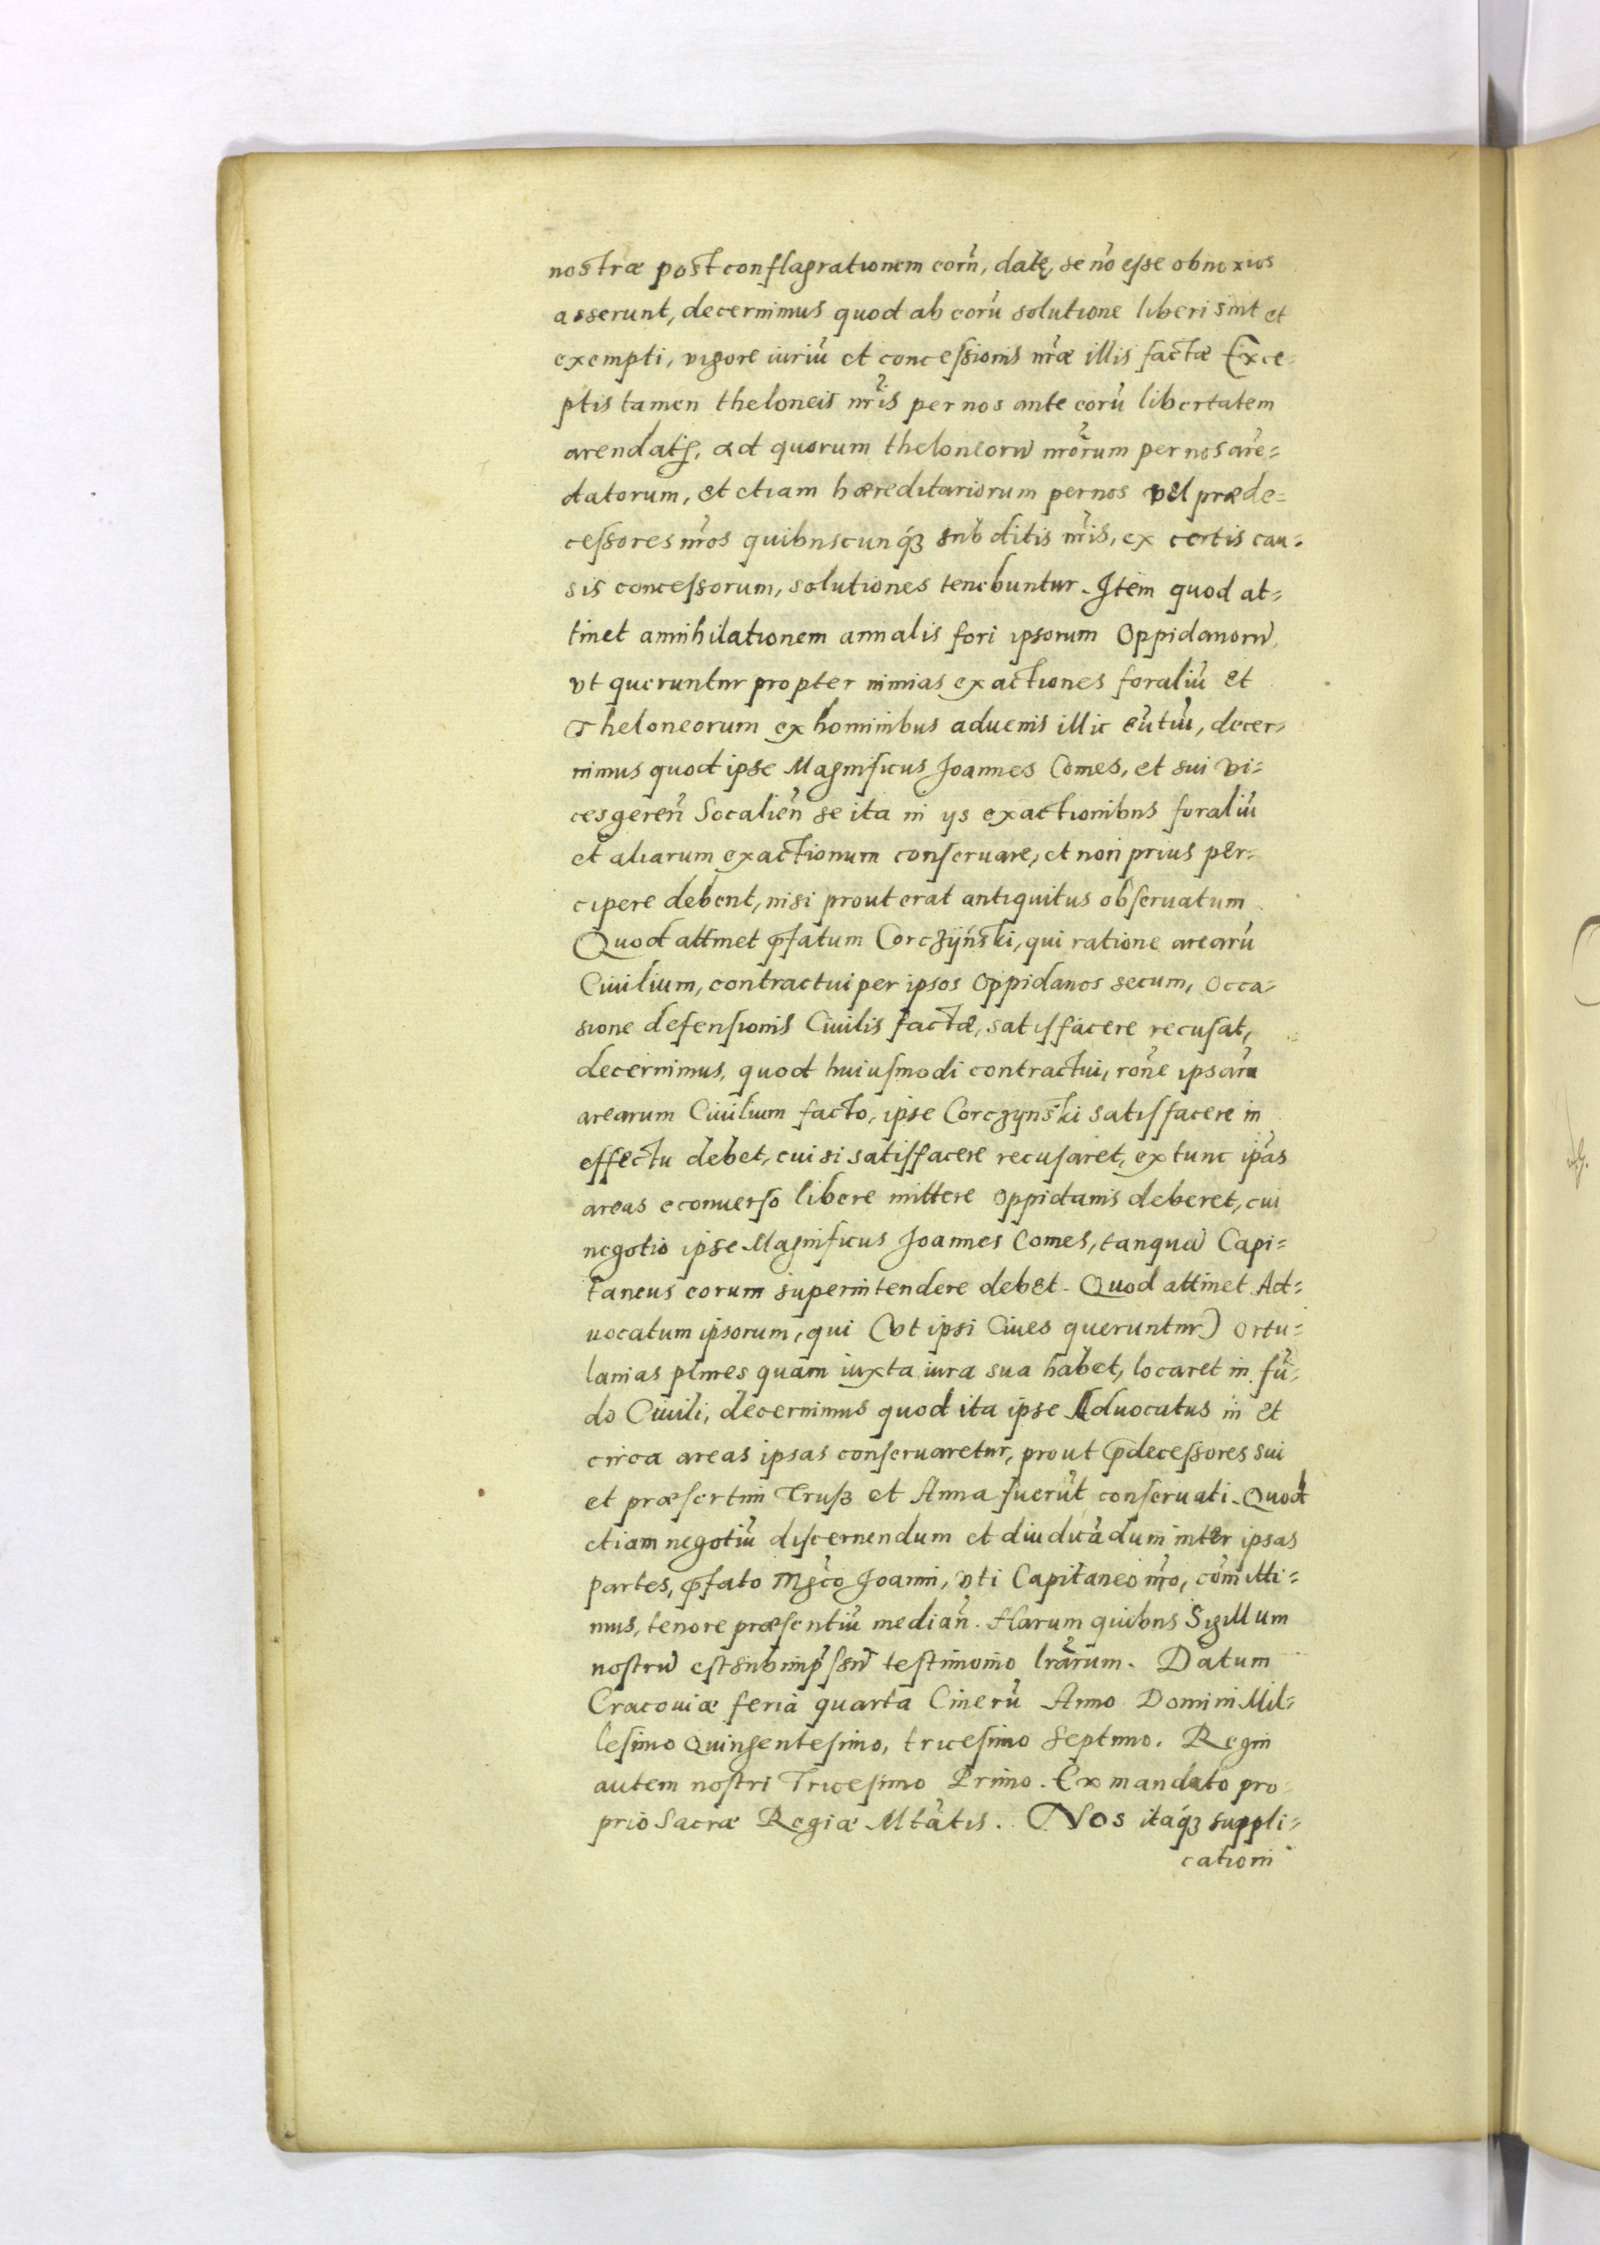 nostræ post conflagrationem eorũ, datę, se nõ esse obnoxios
asserunt, decernimus quod ab eorũ solutione liberi sint et
exempti, vigore iuriũ et concessionis nr̃æ illis factæ Exce-
ptis tamen theloneis nr̃is per nos ante eorũ libertatem
arendatis, ad quorum theloneorũ nrõrum per nos arẽ-
datorum, et etiam hæreditariorum per nos vel præde-
cessores nr̃os quibuscunq́ꝫ subditis nr̃is, ex certis cau-
sis concessorum, solutiones tenebuntur. Item quod at-
tinet annihilationem annalis fori ipsorum Oppidanorũ,
vt queruntur propter nimias exactiones foraliũ et
Theloneorum ex hominibus aduenis illic eũtiũ, decer-
nimus quod ipse Magnificus Joannes Comes, et sui vi-
cesgereñ Socalieñ se ita in ijs exactionibus foraliũ
et aliarum exactionum conseruare, et non prius per-
cipere debent, nisi prout erat antiquitus obseruatum
Quod attinet p̃fatum Corczÿński, qui ratione arearũ
Ciuilium, contractui per ipsos Oppidanos secum, occa-
sione defensionis Ciuilis factæ, satisfacere recusat,
decernimus, quod huiusmodi contractui, rõne ipsarũ
arearum Ciuilium facto, ipse Corczynski satisfacere in
effectu debet, cui si satisfacere recusaret, extunc ip̃as
areas econuerso libere mittere oppidanis deberet, cui
negotio ipse Magnificus Joannes Comes, tanquã Capi-
taneus eorum superintendere debet. Quod attinet Ad-
uocatum ipsorum, qui (vt ipsi Ciues queruntur) ortu-
lanias plures quam iuxta iura sua habet, locaret in fũ-
do Ciuili, decernimus quod ita ipse Aduocatus in et
circa areas ipsas conseruaretur, prout p̃decessores sui
et præsertim Trusz et Anna fuerũt conseruati. Quod
etiam negotiũ discernendum et diudicãdum inter ipsas
partes, p̃fato Mgc̃o Joanni, vti Capitaneo nr̃o, com̃itti-
mus, tenore præsentiũ median̄. Harum quibus Sigillum
nostrũ est subimp̃ssũ testimonio lrãrum. Datum
Cracouiæ feria quarta Cinerũ Anno Domini Mil-
lesimo Quingentesimo, tricesimo Septimo. Regni
autem nostri Tricesimo Primo. Ex mandato pro-
prio Sacræ Regiæ Mtãtis. Nos itaq́ꝫ suppli-
cationi